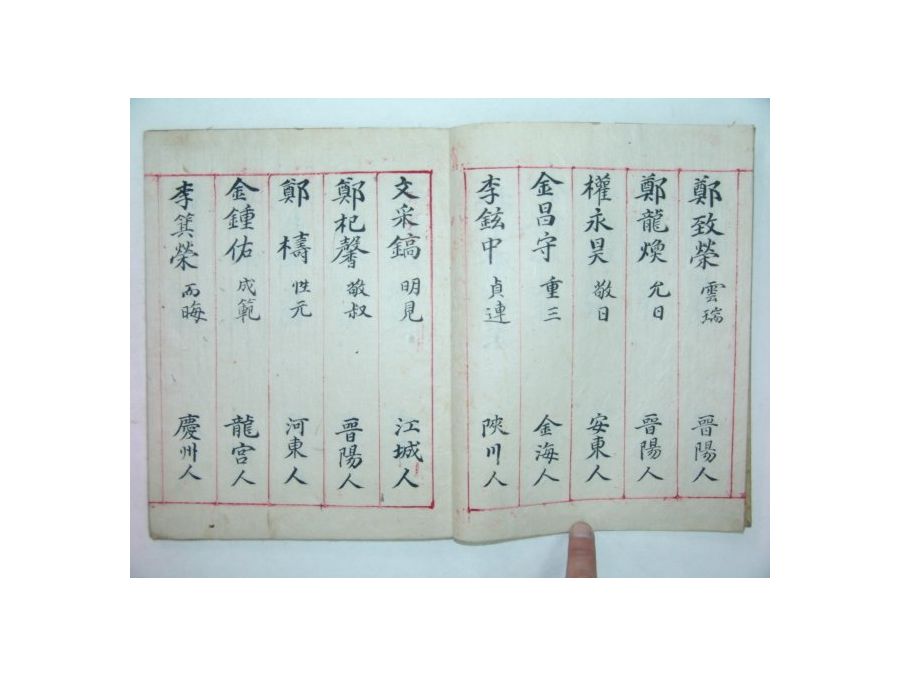 鄭致榮 雲瑞 晉陽人
鄭龍煥 允日 晉陽人
權永昊 敬日 安東人
金昌守 重三 金海人
李鉉中 貞連 陜川人
文采鎬 明見 江城人
鄭杞馨 敬叔 晉陽人
鄭檮 性元 河東人
金鍾佑 成範 龍宮人
李箕榮 丙晦 慶州人